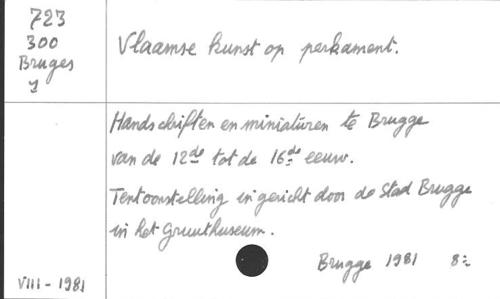 723
300
Bruges
1
Vlaamse kunst op perkament.
Handschriften en miniaturen te Brugge
van de 12de tot de 16de eeuw.
Tentoonstelling ingericht door de Stad Brugge
in het Gruuthuseum.
Brugge 1981 8:
VIII - 1981